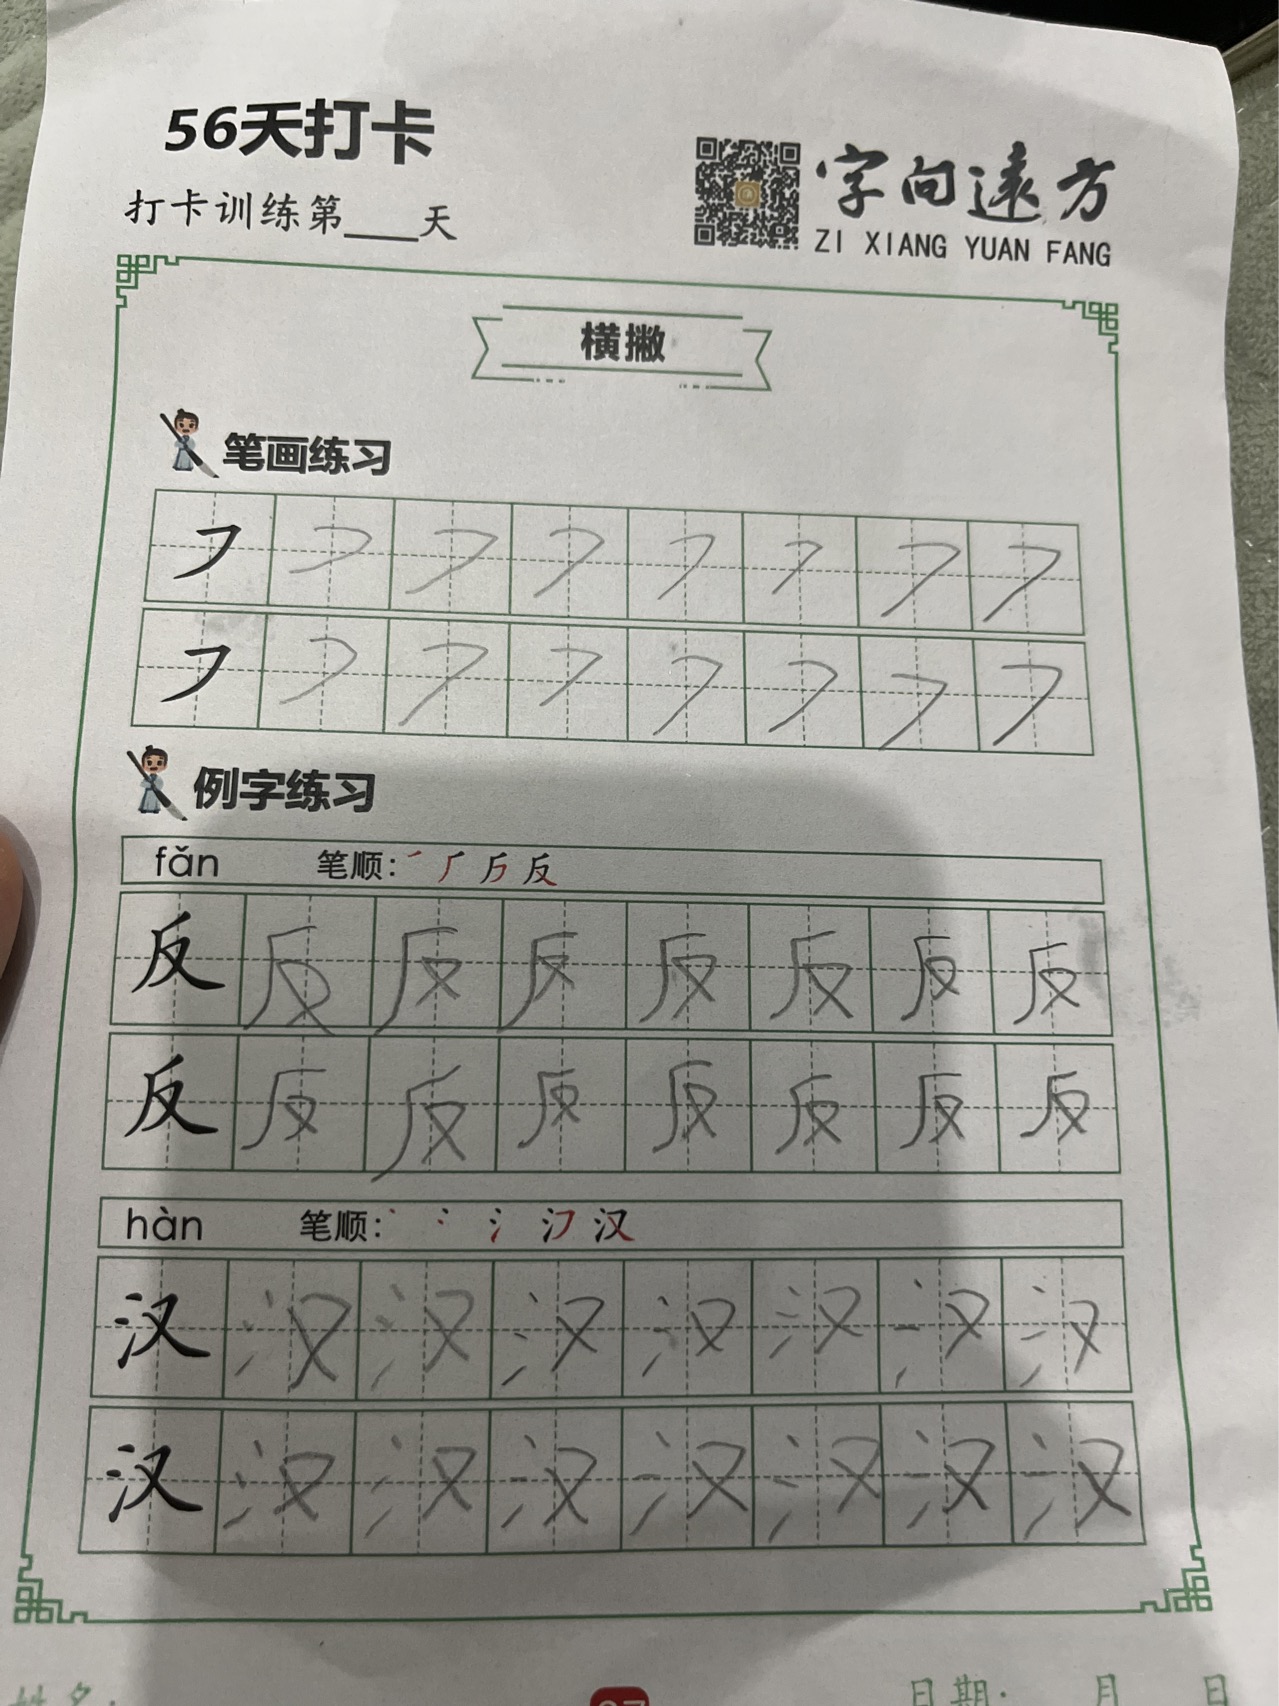 56天打卡
打卡训练第___天
字向遠方
ZI XIANG YUAN FANG
横撇
笔画练习
㇇ ㇇ ㇇ ㇇ ㇇ ㇇ ㇇ ㇇
㇇ ㇇ ㇇ ㇇ ㇇ ㇇ ㇇ ㇇
例字练习
fǎn 笔顺: 反
反 反 反 反 反 反 反 反
反 反 反 反 反 反 反 反
hàn 笔顺: 汉
汉 汉 汉 汉 汉 汉 汉 汉
汉 汉 汉 汉 汉 汉 汉 汉
姓名:
日期: 月 日